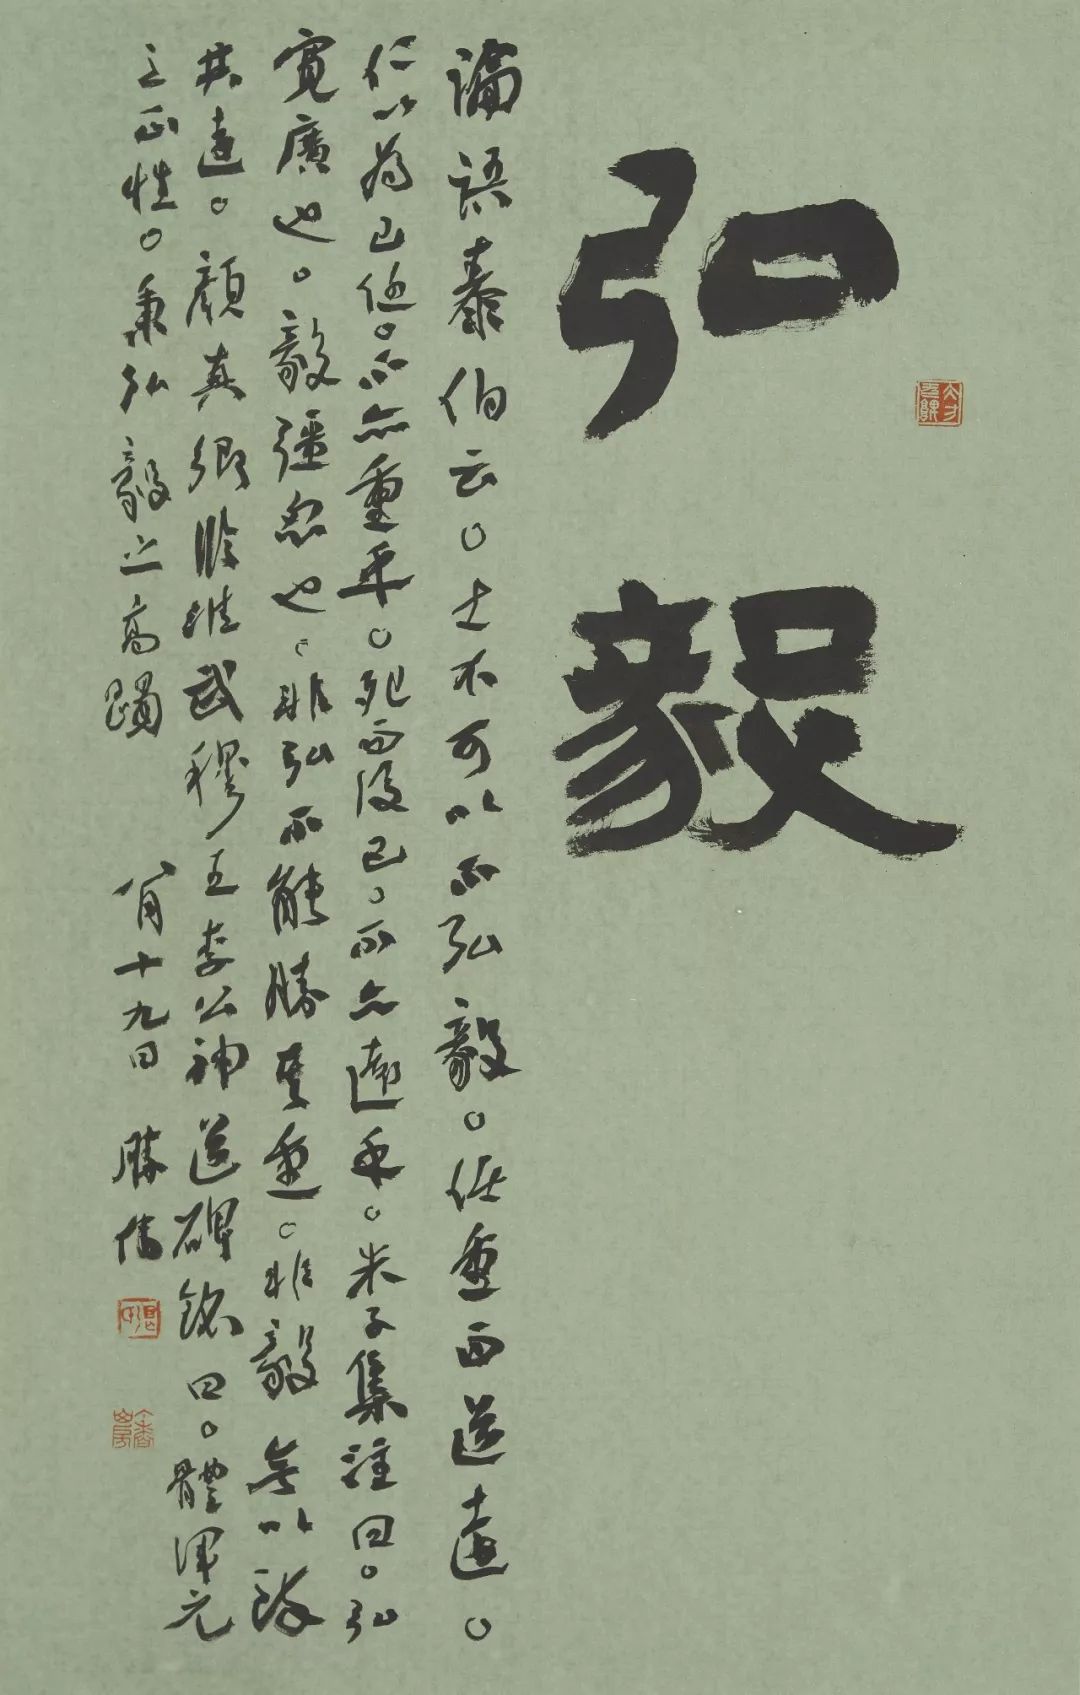 弘毅
論語泰伯云。士不可以不弘毅。任重而道遠。
仁以為己任。不亦重乎。死而後已。不亦遠乎。朱子集註曰。弘
寬廣也。毅彊忍也。非弘不能勝其重。非毅無以致
其遠。顏真卿臨淮武穆王李公神道碑銘曰。體渾元
之正性。秉弘毅之高躅 八月十九日 勝偉